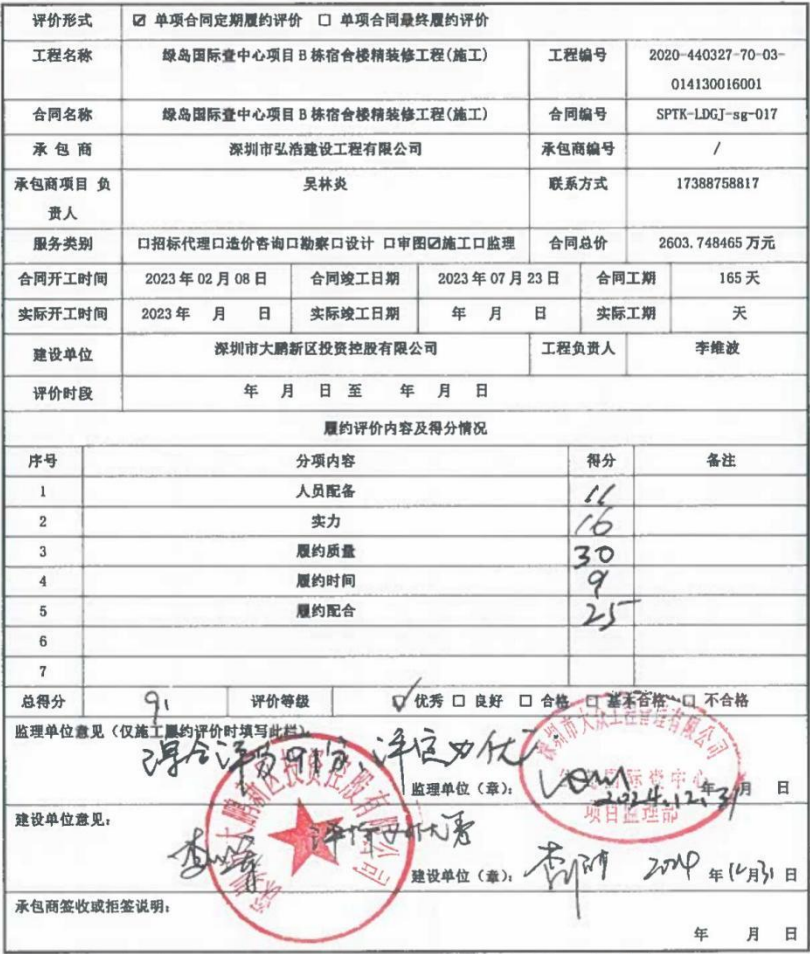 评价形式 ☑ 单项合同定期履约评价 □ 单项合同最终履约评价
工程名称 绿岛国际壹中心项目B栋宿舍楼精装修工程(施工) 工程编号 2020-440327-70-03-
014130016001
合同名称 绿岛国际壹中心项目B栋宿舍楼精装修工程(施工) 合同编号 SPTK-LDGJ-sg-017
承包商 深圳市弘浩建设工程有限公司 承包商编号 /
承包商项目 负 吴林炎 联系方式 17388758817
责人
服务类别 □招标代理□造价咨询□勘察□设计 □审图☑施工□监理 合同总价 2603.748465万元
合同开工时间 2023年02月08日 合同竣工日期 2023年07月23日 合同工期 165天
实际开工时间 2023年 月 日 实际竣工日期 年 月 日 实际工期 天
建设单位 深圳市大鹏新区投资控股有限公司 工程负责人 李维波
评价时段 年 月 日 至 年 月 日
履约评价内容及得分情况
序号 分项内容 得分 备注
1 人员配备 11
2 实力 16
3 履约质量 30
4 履约时间 9
5 履约配合 25
6
7
总得分 91 评价等级 ☑ 优秀 □ 良好 □ 合格 □ 基本合格 □ 不合格
监理单位意见（仅施工履约评价时填写此栏）：
综合评分91分，评定为优
监理单位（章）： 2024.12.31 年 月 日
深圳市大众工程管理有限公司
项目监理部
建设单位意见：
深圳市大鹏新区投资控股有限公司
建设单位（章）： 2024 年12月31日
承包商签收或拒签说明：
年 月 日